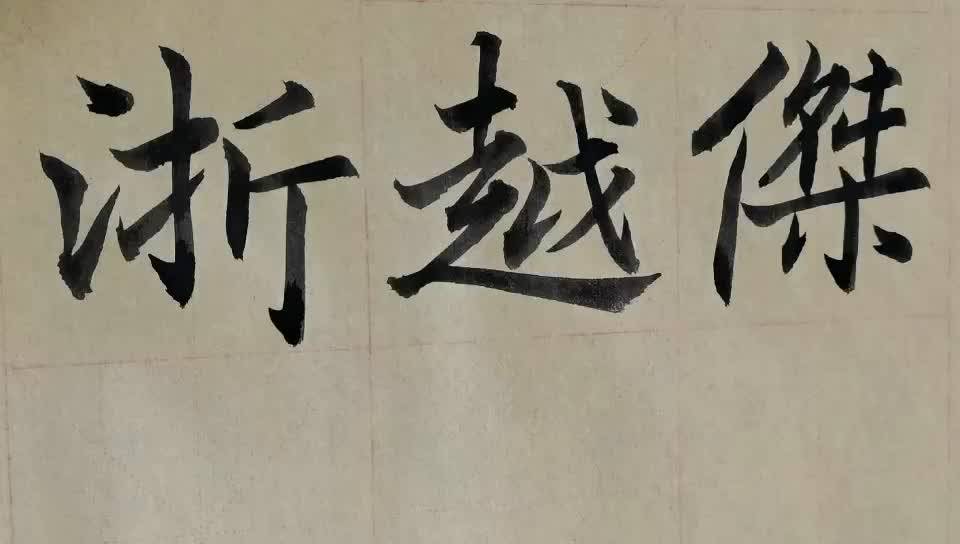 浙越傑